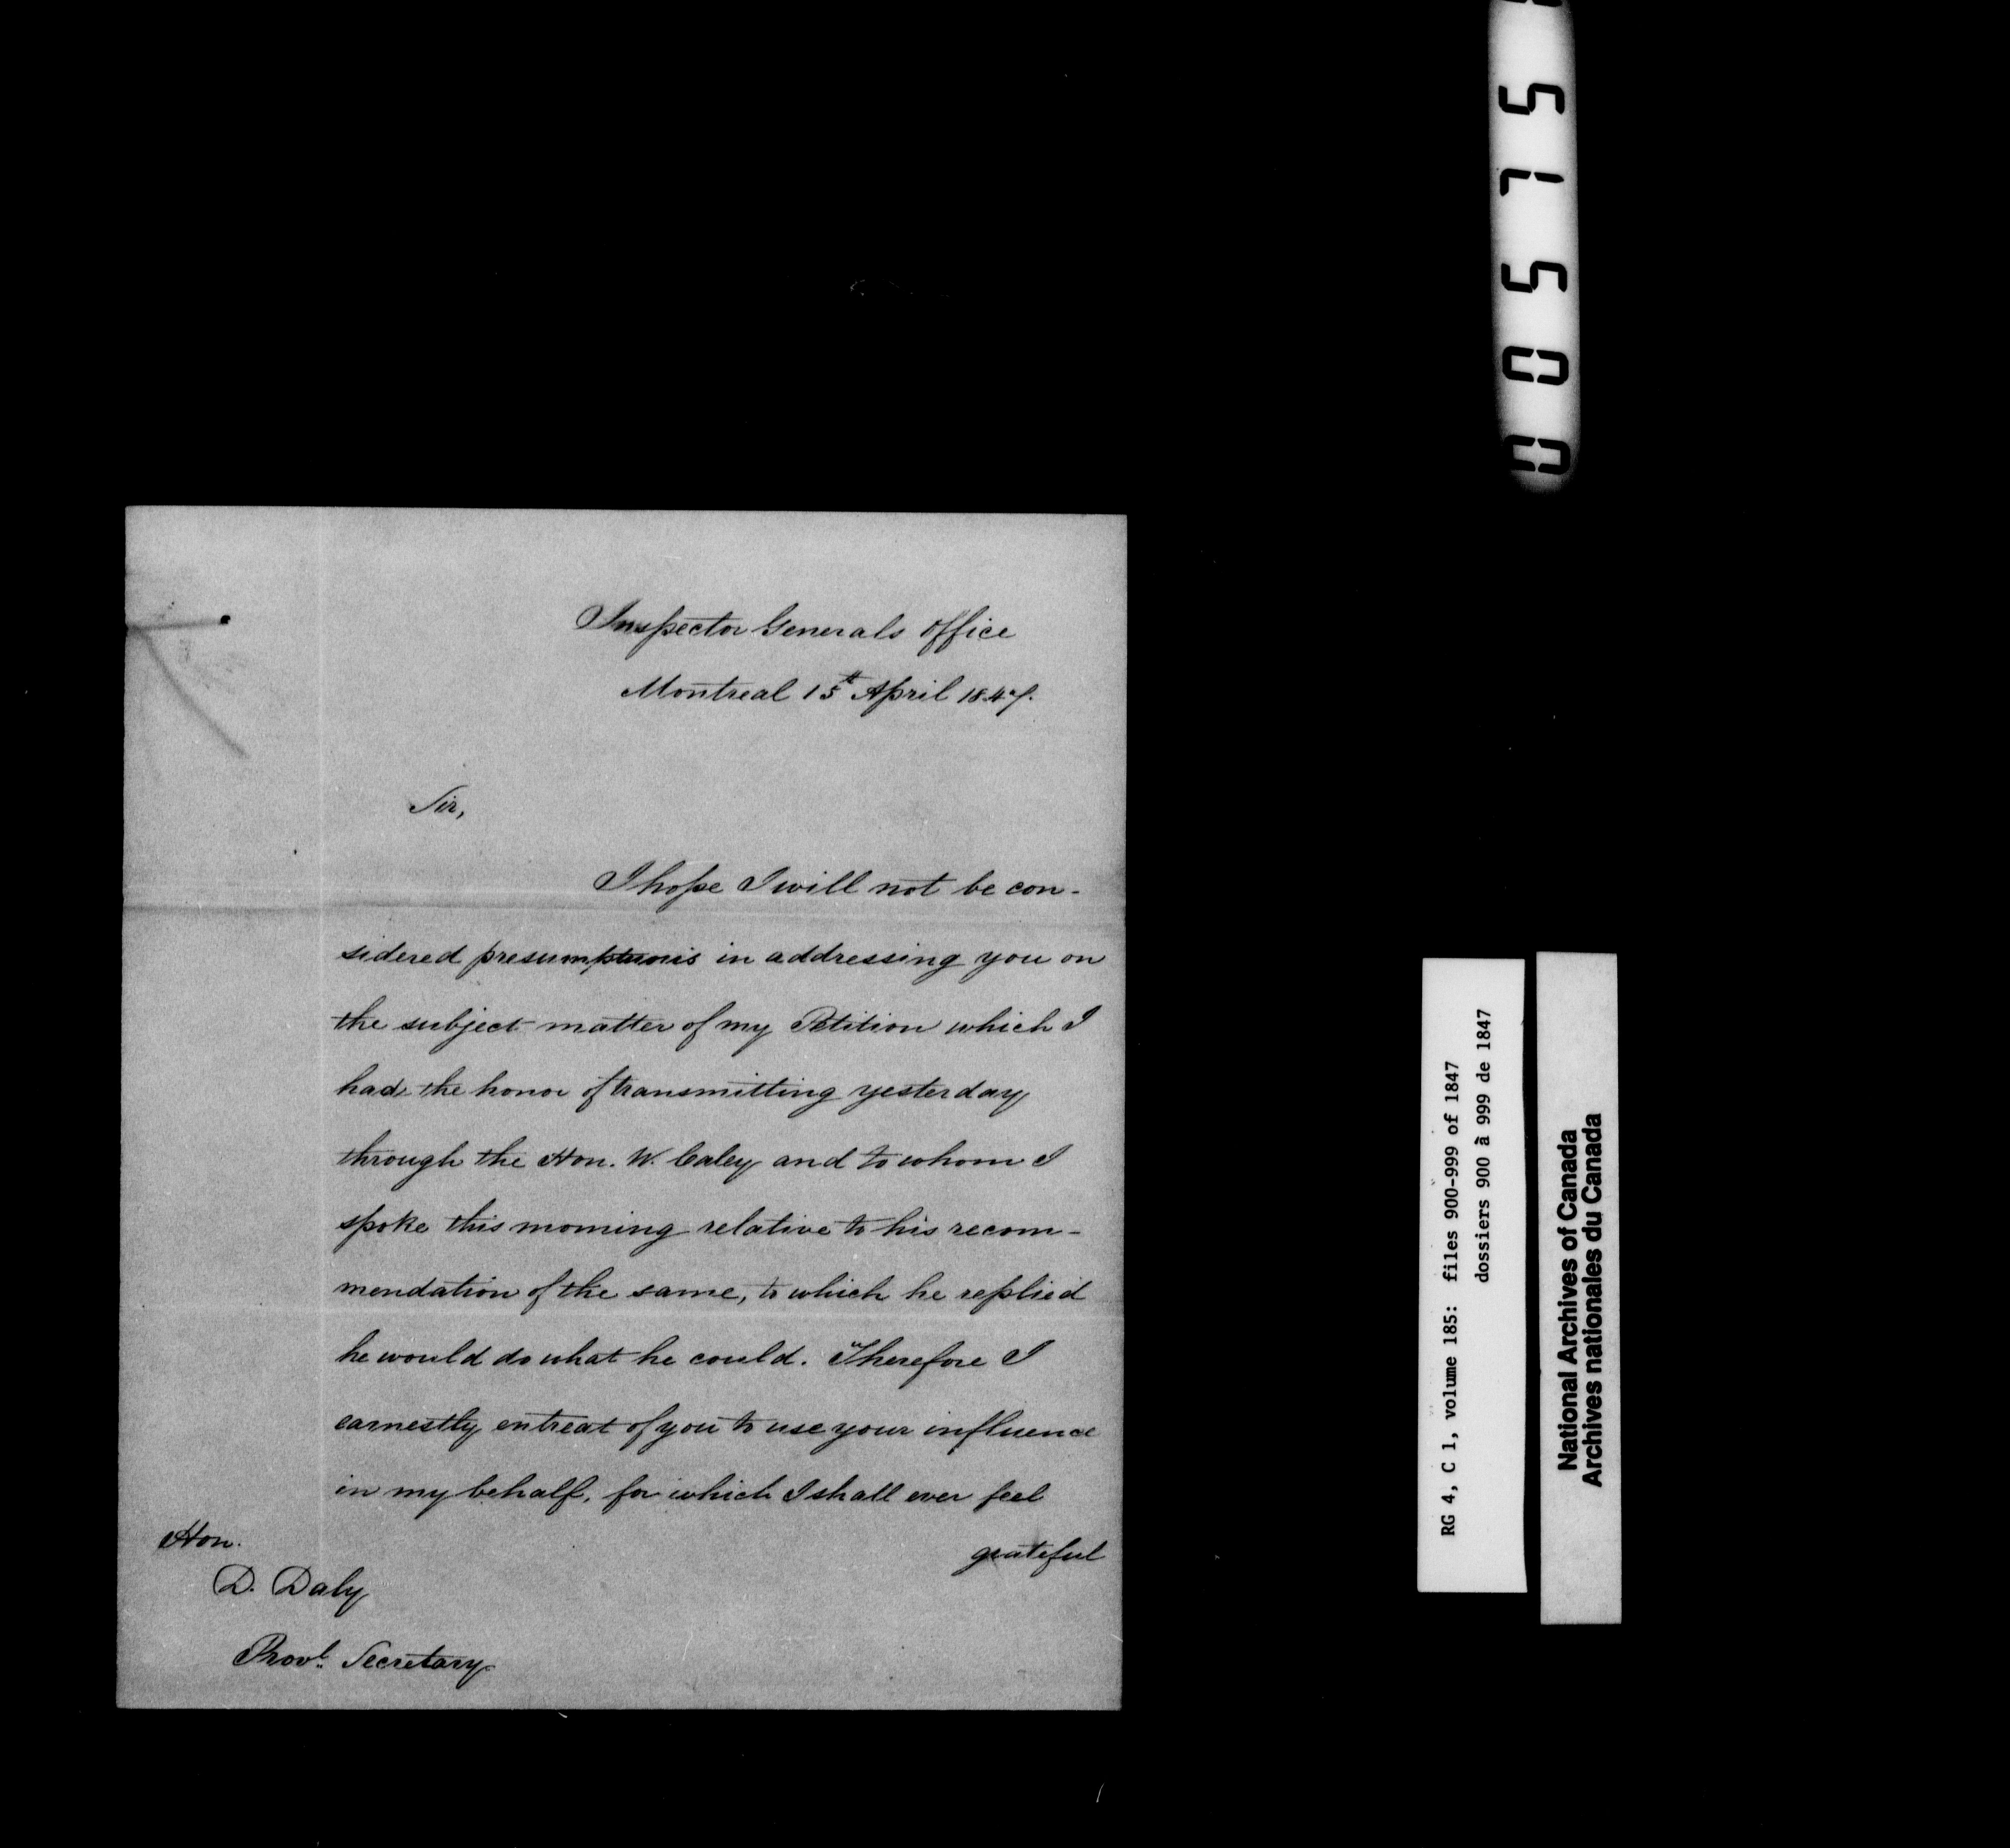 Inspector Generals Office
Montreal 15th April 1847.
Sir,
I hope I will not be con-
sidered presumptuous in addressing you on
the subject matter of my Petition which I
had the honor of transmitting yesterday
through the Hon. W. Caley and to whom I
spoke this morning relative to his recom-
mendation of the same, to which he replied
he would do what he could. Therefore I
earnestly entreat of you to use your influence
in my behalf, for which I shall ever feel
grateful
Hon.
D. Daly
Provl. Secretary
RG 4, C 1, volume 185: files 900-999 of 1847
dossiers 900 à 999 de 1847
National Archives of Canada
Archives nationales du Canada